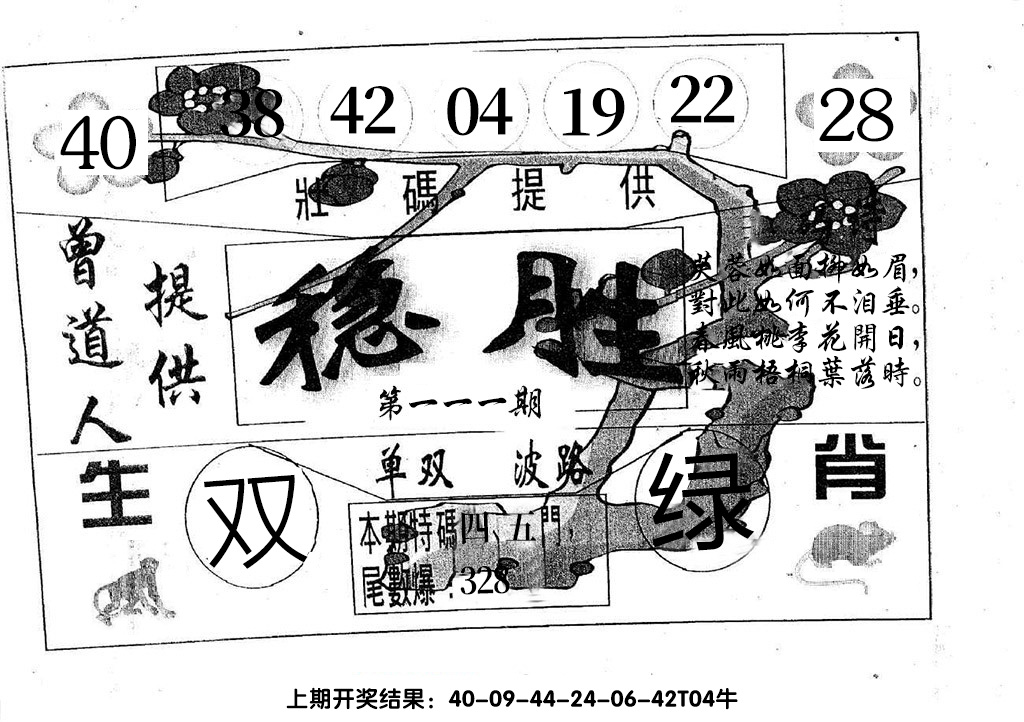 40 38 42 04 19 22 28
壯碼提供
曾道人
提供
稳胜
第一一一期
芙蓉如面柳如眉，
對此如何不泪垂。
春風桃李花開日，
秋雨梧桐葉落時。
单双 波路
生肖
双
绿
本期特碼四、五門，
尾數爆：328
上期开奖结果：40-09-44-24-06-42T04牛